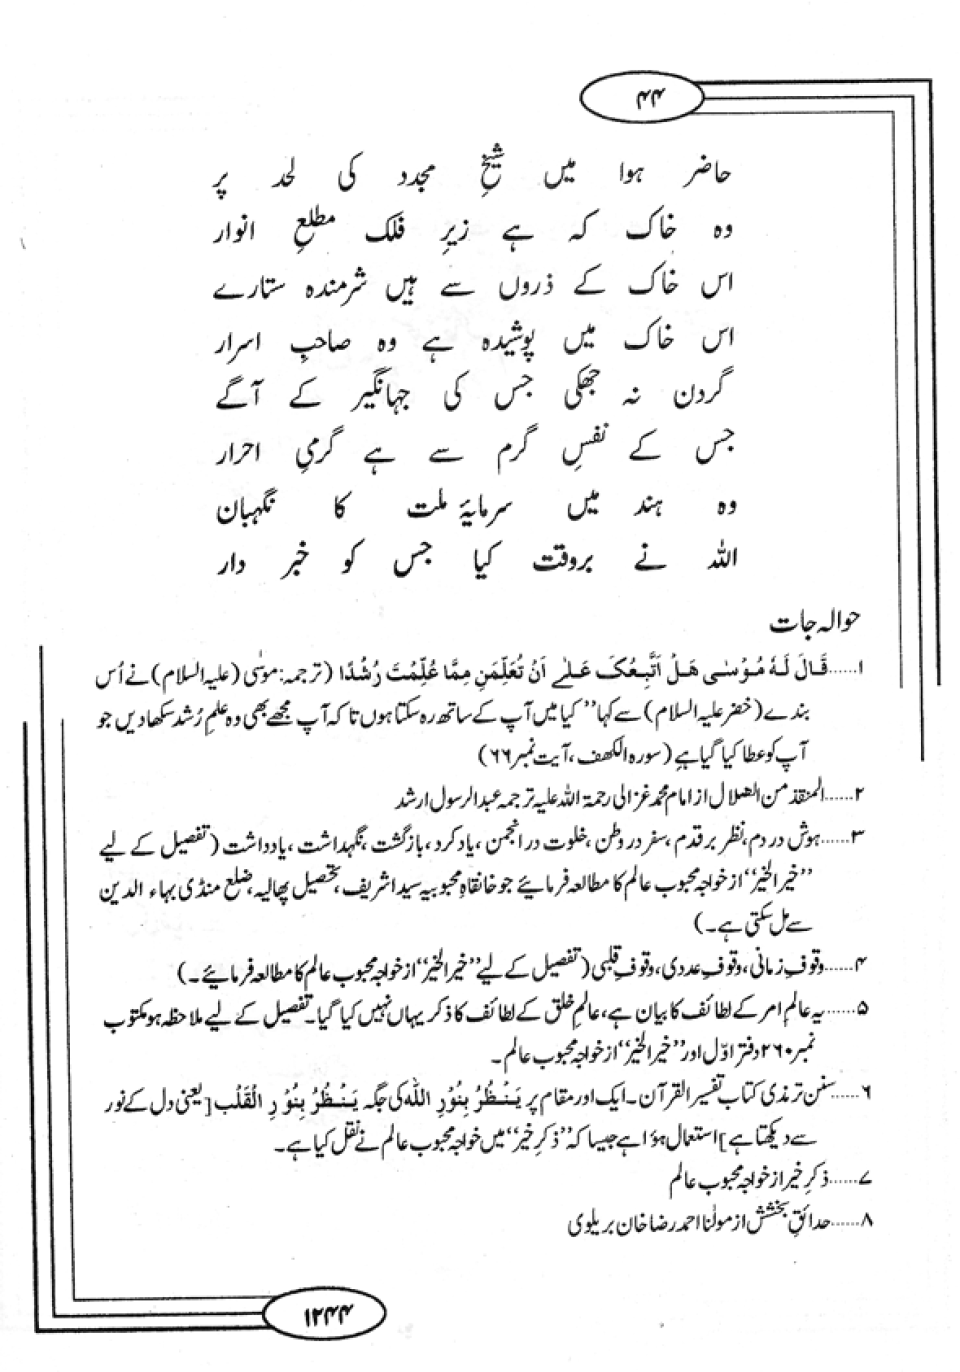 ۴۴
حاضر ہوا میں شیخِ مجدد کی لحد پر
وہ خاک کہ ہے زیرِ فلک مطلعِ انوار
اس خاک کے ذروں سے ہیں شرمندہ ستارے
اس خاک میں پوشیدہ ہے وہ صاحبِ اسرار
گردن نہ جھکی جس کی جہانگیر کے آگے
جس کے نفسِ گرم سے ہے گرمیِ احرار
وہ ہند میں سرمایۂ ملت کا نگہبان
اللہ نے بروقت کیا جس کو خبر دار
حوالہ جات
۱.....قَالَ لَهٗ مُوْسٰی هَلْ اَتَّبِعُکَ عَلٰے اَنْ تُعَلِّمَنِ مِمَّا عُلِّمْتَ رُشْدًا (ترجمہ: موسٰی (علیہ السلام) نے اُس
بندے (خضر علیہ السلام) سے کہا ’’کیا میں آپ کے ساتھ رہ سکتا ہوں تا کہ آپ مجھے بھی وہ علمِ رُشد سکھا دیں جو
آپ کو عطا کیا گیا ہے (سورہ الکھف، آیت نمبر ۶۶)
۲.....المنقذ من الضلال از امام محمد غزالی رحمۃ اللہ علیہ ترجمہ عبد الرسول ارشد
۳.....ہوش در دم، نظر بر قدم، سفر در وطن، خلوت در انجمن، یاد کرد، بازگشت، نگہداشت، یادداشت (تفصیل کے لیے
’’خیر الخیر‘‘ از خواجہ محبوب عالم کا مطالعہ فرمائیے جو خانقاہِ محبوبیہ سیدا شریف، تحصیل پھالیہ، ضلع منڈی بہاء الدین
سے مل سکتی ہے۔)
۴.....وقوفِ زمانی، وقوفِ عددی، وقوفِ قلبی (تفصیل کے لیے ’’خیر الخیر‘‘ از خواجہ محبوب عالم کا مطالعہ فرمائیے۔)
۵.....یہ عالمِ امر کے لطائف کا بیان ہے، عالمِ خلق کے لطائف کا ذکر یہاں نہیں کیا گیا۔ تفصیل کے لیے ملاحظہ ہو مکتوب
نمبر ۲۶۰ دفتر اوّل اور ’’خیر الخیر‘‘ از خواجہ محبوب عالم۔
۶.....سنن ترمذی کتاب تفسیر القرآن۔ ایک اور مقام پر یَنْظُرُ بِنُوْرِ اللّٰہ کی جگہ یَنْظُرُ بِنُوْرِ الْقَلْب [یعنی دل کے نور
سے دیکھتا ہے] استعمال ہؤا ہے جیسا کہ ’’ذکرِ خیر‘‘ میں خواجہ محبوب عالم نے نقل کیا ہے۔
۷.....ذکرِ خیر از خواجہ محبوب عالم
۸.....حدائقِ بخشش از مولٰنا احمد رضا خان بریلوی
۱۲۴۴